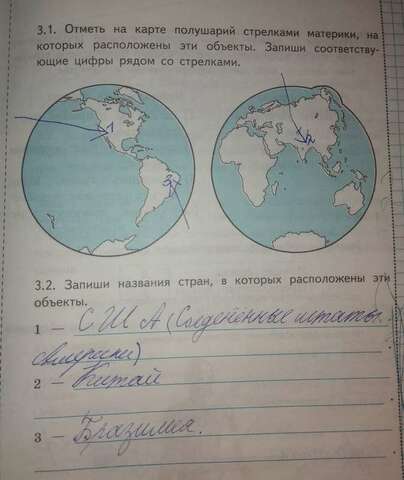 3.1. Отметь на карте полушарий стрелками материки, на
которых расположены эти объекты. Запиши соответству-
ющие цифры рядом со стрелками.
1
2
3
3.2. Запиши названия стран, в которых расположены эти
объекты.
1 – США (Соеденённые штаты
америки)
2 – Китай
3 – Бразилия.